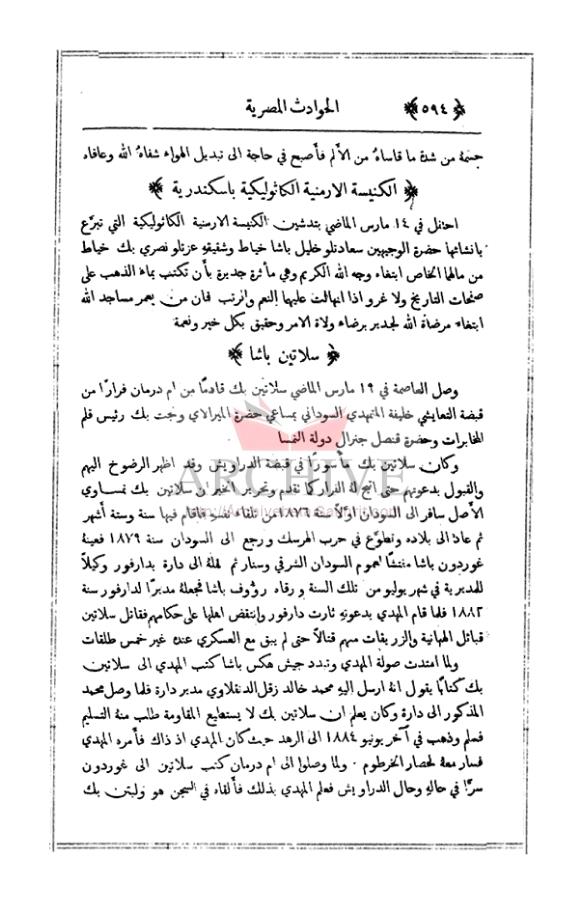 ﴿ ٥٩٤ ﴾ الحوادث المصرية
جسمهُ من شدة ما قاساهُ من الألم فأصبح في حاجة الى تبديل الهواء شفاهُ الله وعافاه
﴿ الكنيسة الارمنية الكاثوليكية باسكندرية ﴾
احتفل في ١٤ مارس الماضي بتدشين الكنيسة الارمنية الكاثوليكية التي تبرَّع
بانشائها حضرة الوجيهين سعادتلو خليل باشا خياط وشقيقهِ عزتلو نصري بك خياط
من مالهما الخاص ابتغاء وجه الله الكريم وهي مأثرة جديرة بأن تكتب بماء الذهب على
صفحات التاريخ ولا غرو اذا انهالت عليهما النعم والرتب فان من يعمر مساجد الله
ابتغاء مرضاة الله لجدير برضاء ولاة الامر وحقيق بكل خير ونعمة
﴿ سلاتين باشا ﴾
وصل العاصمة في ١٩ مارس الماضي سلاتين بك قادمًا من ام درمان فرارًا من
قبضة التعايشي خليفة المتمهدي السوداني بمساعي حضرة الميرالاي ونجت بك رئيس قلم
المخابرات وحضرة قنصل جنرال دولة النمسا
وكان سلاتين بك مأسورًا في قبضة الدراويش وقد اظهر الرضوخ اليهم
والقبول بدعوتهم حتى اتيح لهُ الفرار كما تقدم وتحرير الخبر ان سلاتين بك نمساوي
الأصل سافر الى السودان اولاً سنة ١٨٧٦ من تلقاء نفسهِ فاقام فيها سنة وستة أشهر
ثم عاد الى بلاده وتطوَّع في حرب الهرسك ورجع الى السودان سنة ١٨٧٩ فعينهُ
غوردون باشا مفتشًا لعموم السودان الشرقي وسنار ثم نقلهُ الى دارة بدارفور وكيلاً
للمديرية في شهر يوليو من تلك السنة ورقاه رؤوف باشا فجعلهُ مديرًا لدارفور سنة
١٨٨٢ فلما قام المهدي بدعوتهِ ثارت دارفور وانتفض اهلها على حكامهم فقاتل سلاتين
قبائل الهبانية والزريقات منهم قتالاً حتى لم يبق مع العسكري عنده غير خمس طلقات
ولما امتدت صولة المهدي وتبدد جيش هكس باشا كتب المهدي الى سلاتين
بك كتابًا يقول انهُ ارسل اليهِ محمد خالد زقل الدنقلاوي مدير دارة فلما وصل محمد
المذكور الى دارة وكان يعلم ان سلاتين بك لا يستطيع المقاومة طلب منهُ التسليم
فسلم وذهب في آخر يونيو ١٨٨٤ الى الرهد حيث كان المهدي اذ ذاك فأمره المهدي
فسار معهُ لحصار الخرطوم ٠ ولما وصلوا الى ام درمان كتب سلاتين الى غوردون
سرًّا في حالهِ وحال الدراويش فعلم المهدي بذلك فألقاه في السجن هو ولبتن بك
ARCHIVE